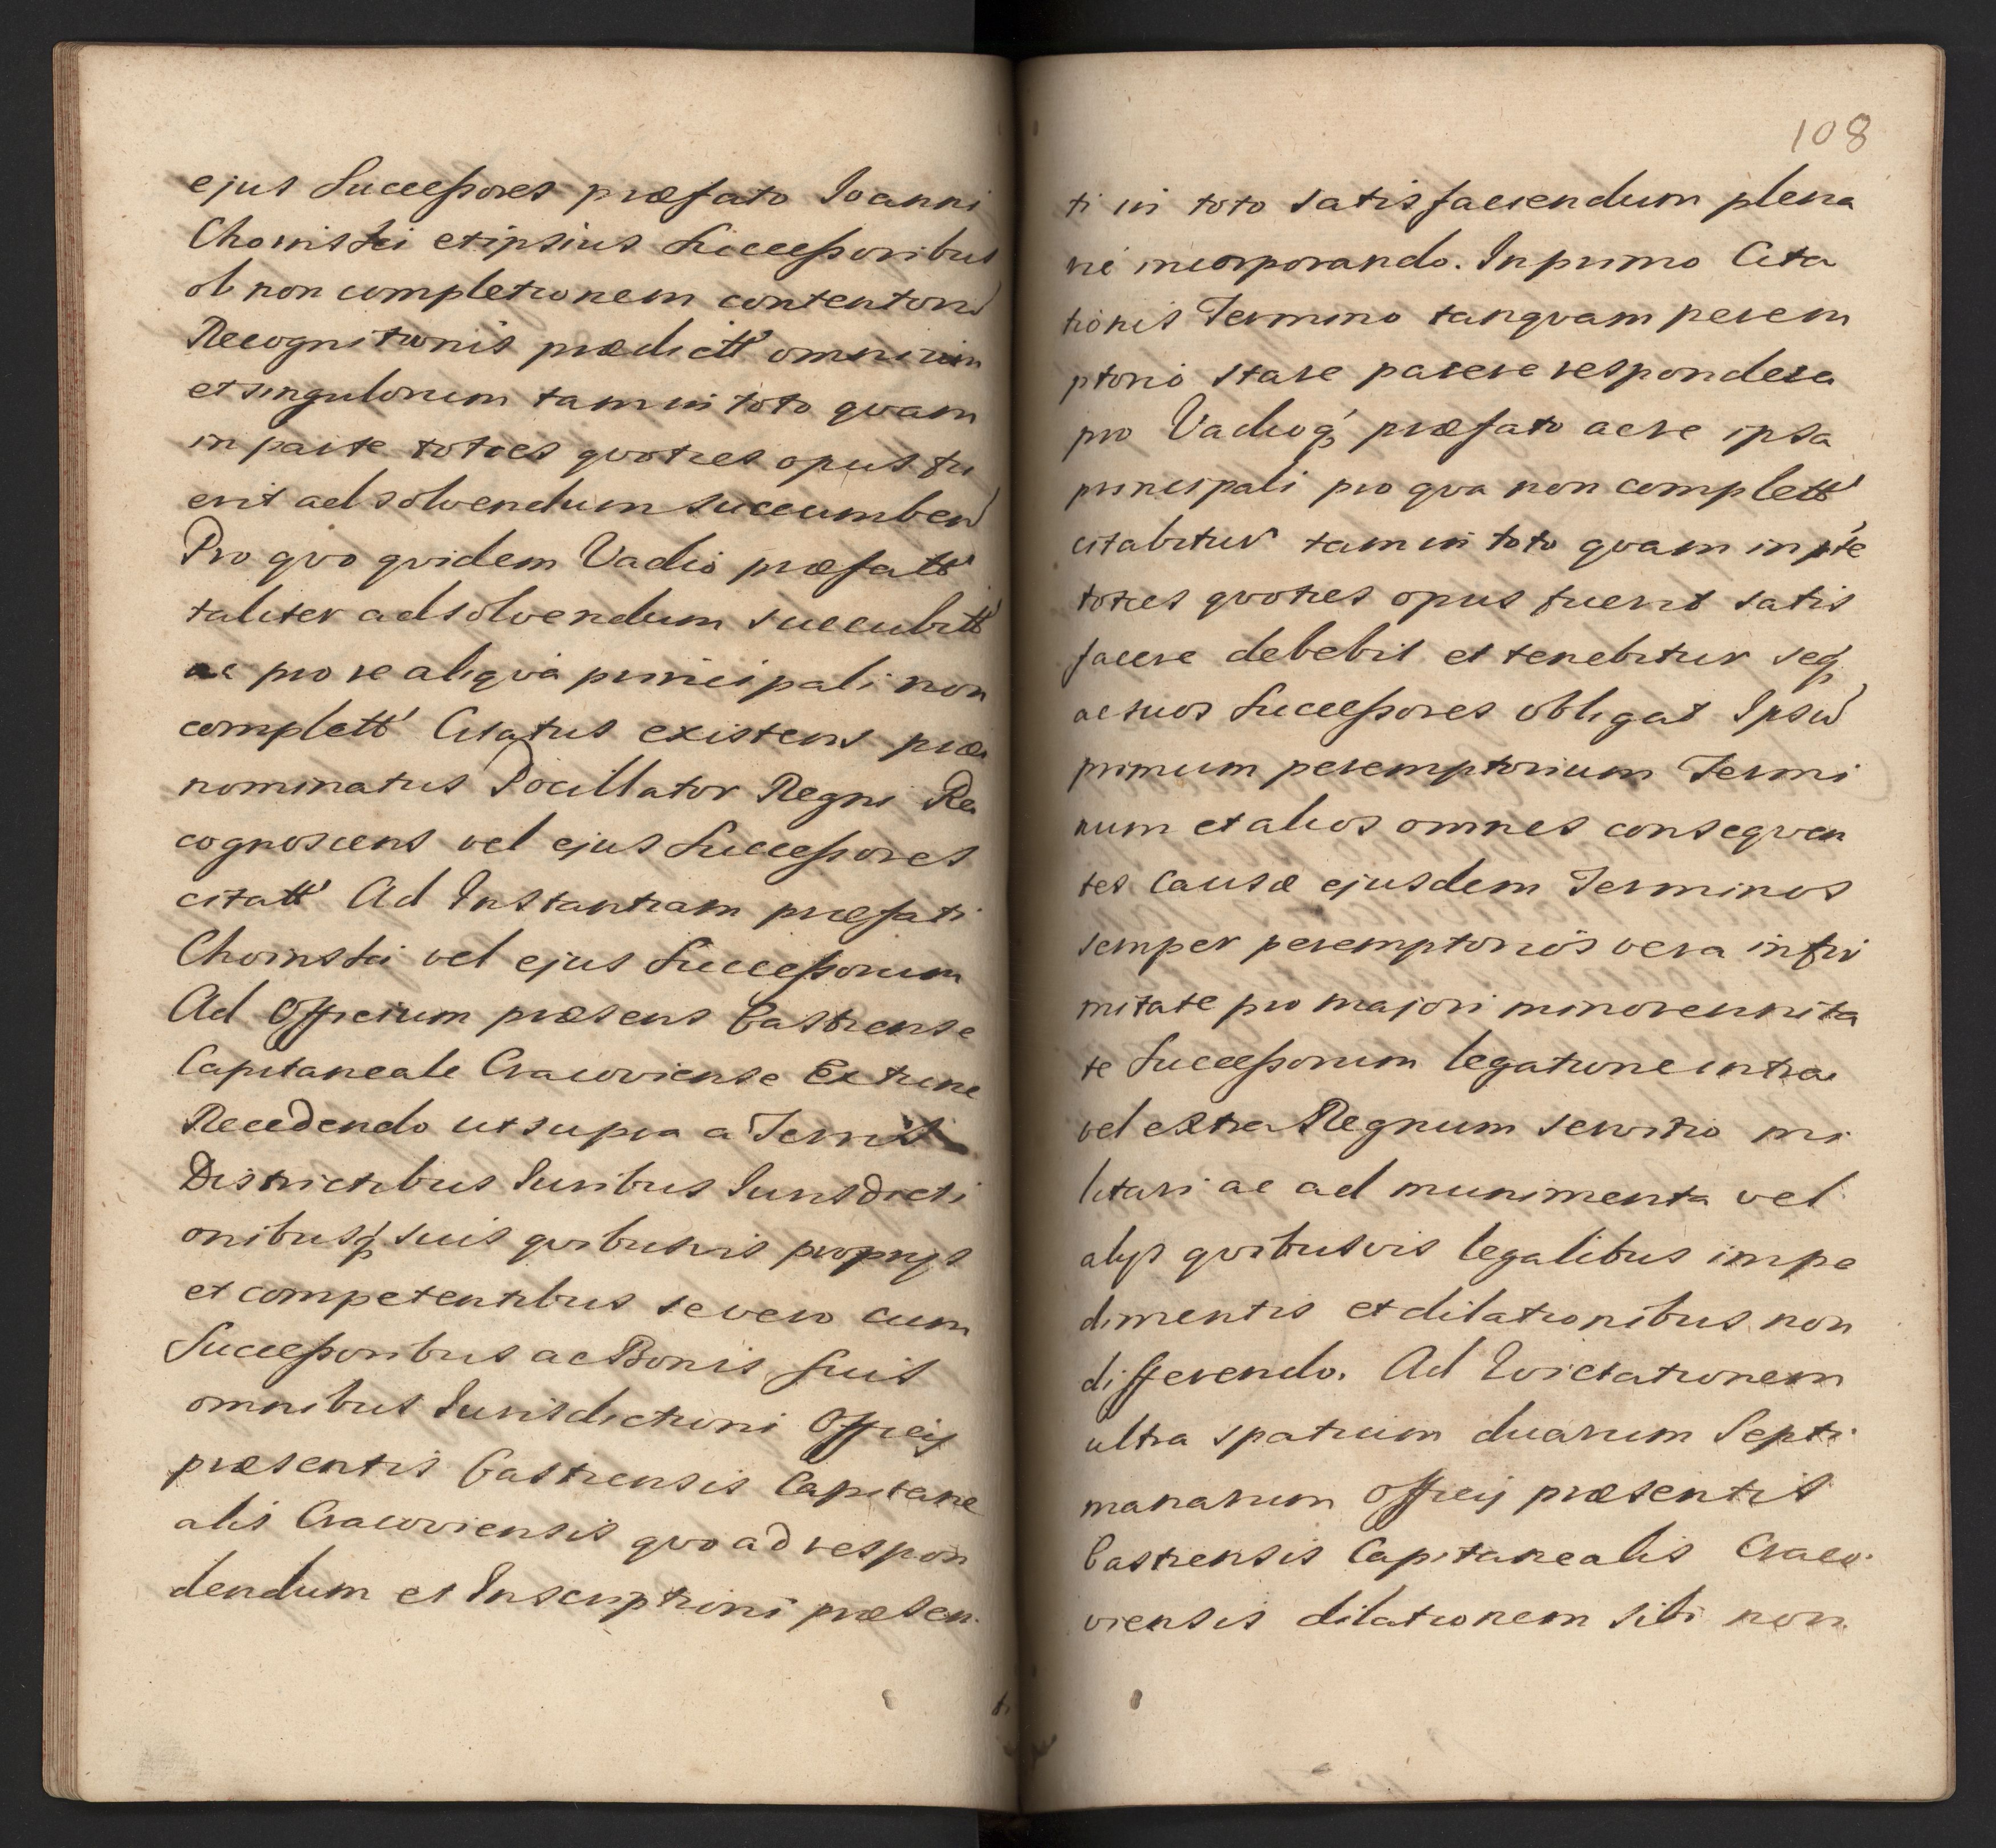 ejus Successores præfato Ioanni
Choinski et ipsius Successoribus
ob non completionem contentorū
Recognitionis prædictt' omnium
et singulorum tam in toto qvam
in parte toties qvoties opus fu
erit ad solvendum succumben̄
Pro qvo qvidem Vadio præfatt'
taliter ad solvendum succubitt'
ac pro re aliqva principali non
complett' Citatus existens præ
nominatus Pocillator Regni Re
cognoscens vel ejus Successores
citatt' Ad Instantiam præfati
Choinski vel ejus Successorum
Ad Officium præsens Castrense
Capitaneale Cracoviense Extunc
Recedendo ut supra a Terris
Districtibus Iuribus Iurisdicti
onibusq; suis qvibusvis proprijs
et competentibus se vero cum
Successoribus ac Bonis suis
omnibus Iurisdictioni Officij
præsentis Castrensis Capitane
alis Cracoviensis qvo ad respon
dendum et Inscriptioni præsen
ti
108
ti in toto satisfaciendum plena
riè incorporando. In primo Cita
tionis Termino tanqvam perem
ptorio stare parere respondere
pro Vadioq; præfato ac re ipsa
principali pro qva non complett'
citabitur tam in toto qvam in pte
toties qvoties opus fuerit satis
facere debebit et tenebitur seq;
ac suos Successores obligat Ipsū
primum peremptorium Termi
num et alios omnes conseqven
tes Causæ ejusdem Terminos
semper peremptoriós vera infir
mitate pro majori minorennita
te Successorum legatione intra
vel extra Regnum servitio mi
litari ac ad munimenta vel
alijs qvibusvis legalibus impe
dimentis et dilationibus non
differendo. Ad Evictationem
ultra spatium duarum Septi
manarum Officij præsentis
Castrensis Capitanealis Craco
viensis dilationem sibi non